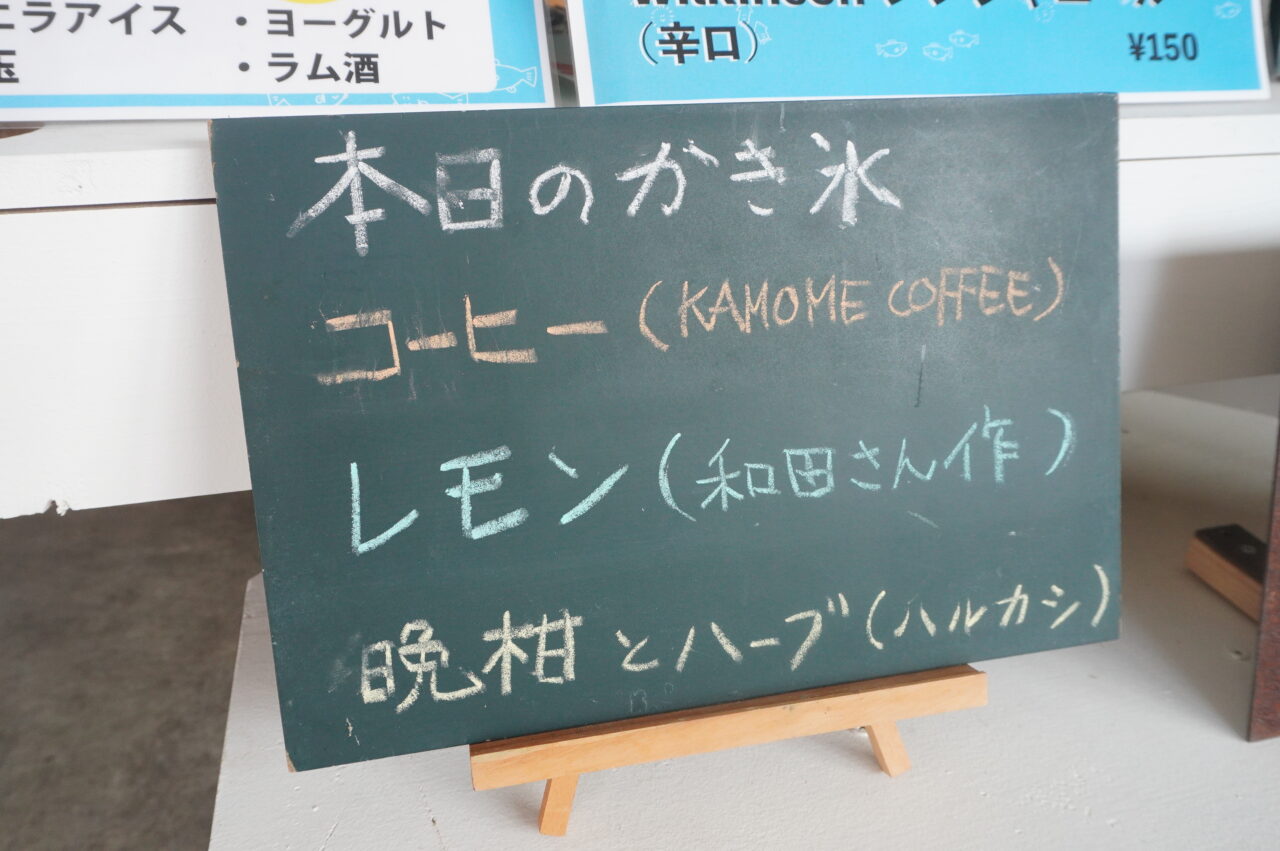 ラアイス ・ヨーグルト
玉 ・ラム酒
(辛口)
¥150
本日のかき氷
コーヒー (KAMOME COFFEE)
レモン (和田さん作)
晩柑とハーブ (ハルカシ)